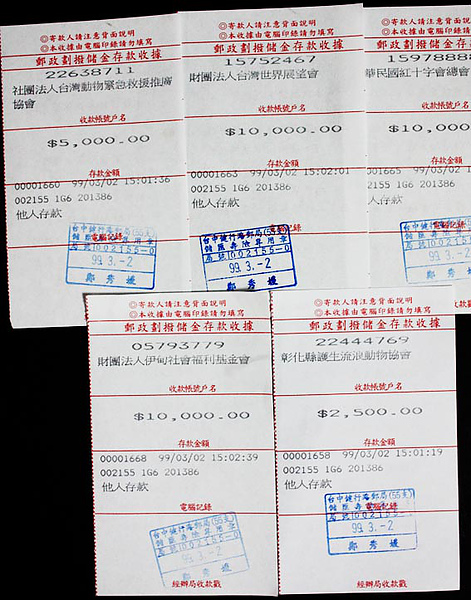 ◎寄款人請注意背面說明
◎本收據由電腦印錄請勿填寫
郵政劃撥儲金存款收據
22638711
社團法人台灣動物緊急救援推廣
協會
收款帳號戶名
$5,000.00
存款金額
00001660 99/03/02 15:01:36
002155 1G6 201386
他人存款
電腦記錄
台中健行路郵局(55支)
儲匯壽險專用章
局號002155-0
99.3.-2
鄭秀媛
◎寄款人請注意背面說明
◎本收據由電腦印錄請勿填寫
郵政劃撥儲金存款收據
15752467
財團法人台灣世界展望會
收款帳號戶名
$10,000.00
存款金額
00001663 99/03/02 15:02:01
002155 1G6 201386
他人存款
電腦記錄
台中健行路郵局(55支)
儲匯壽險專用章
局號002155-0
99.3.-2
鄭秀媛
◎寄款人請注意背面說明
◎本收據由電腦印錄請勿填寫
郵政劃撥儲金存款收據
1597888
華民國紅十字會總會
收款帳號戶名
$10,000
存款金額
001665 99/03/02 15:02
155 1G6 201386
人存款
電腦記錄
台中健行路郵局
儲匯壽險專用
局號002155
99.3.-2
鄭秀媛
◎寄款人請注意背面說明
◎本收據由電腦印錄請勿填寫
郵政劃撥儲金存款收據
05793779
財團法人伊甸社會福利基金會
收款帳號戶名
$10,000.00
存款金額
00001668 99/03/02 15:02:39
002155 1G6 201386
他人存款
電腦記錄
台中健行路郵局(55支)
儲匯壽險專用章
局號002155-0
99.3.-2
鄭秀媛
經辦局收款戳
◎寄款人請注意背面說明
◎本收據由電腦印錄請勿填寫
郵政劃撥儲金存款收據
22444769
彰化縣護生流浪動物協會
收款帳號戶名
$2,500.00
存款金額
00001658 99/03/02 15:01:19
002155 1G6 201386
他人存款
電腦記錄
台中健行路郵局(55支)
儲匯壽險專用章
局號002155-0
99.3.-2
鄭秀媛
經辦局收款戳